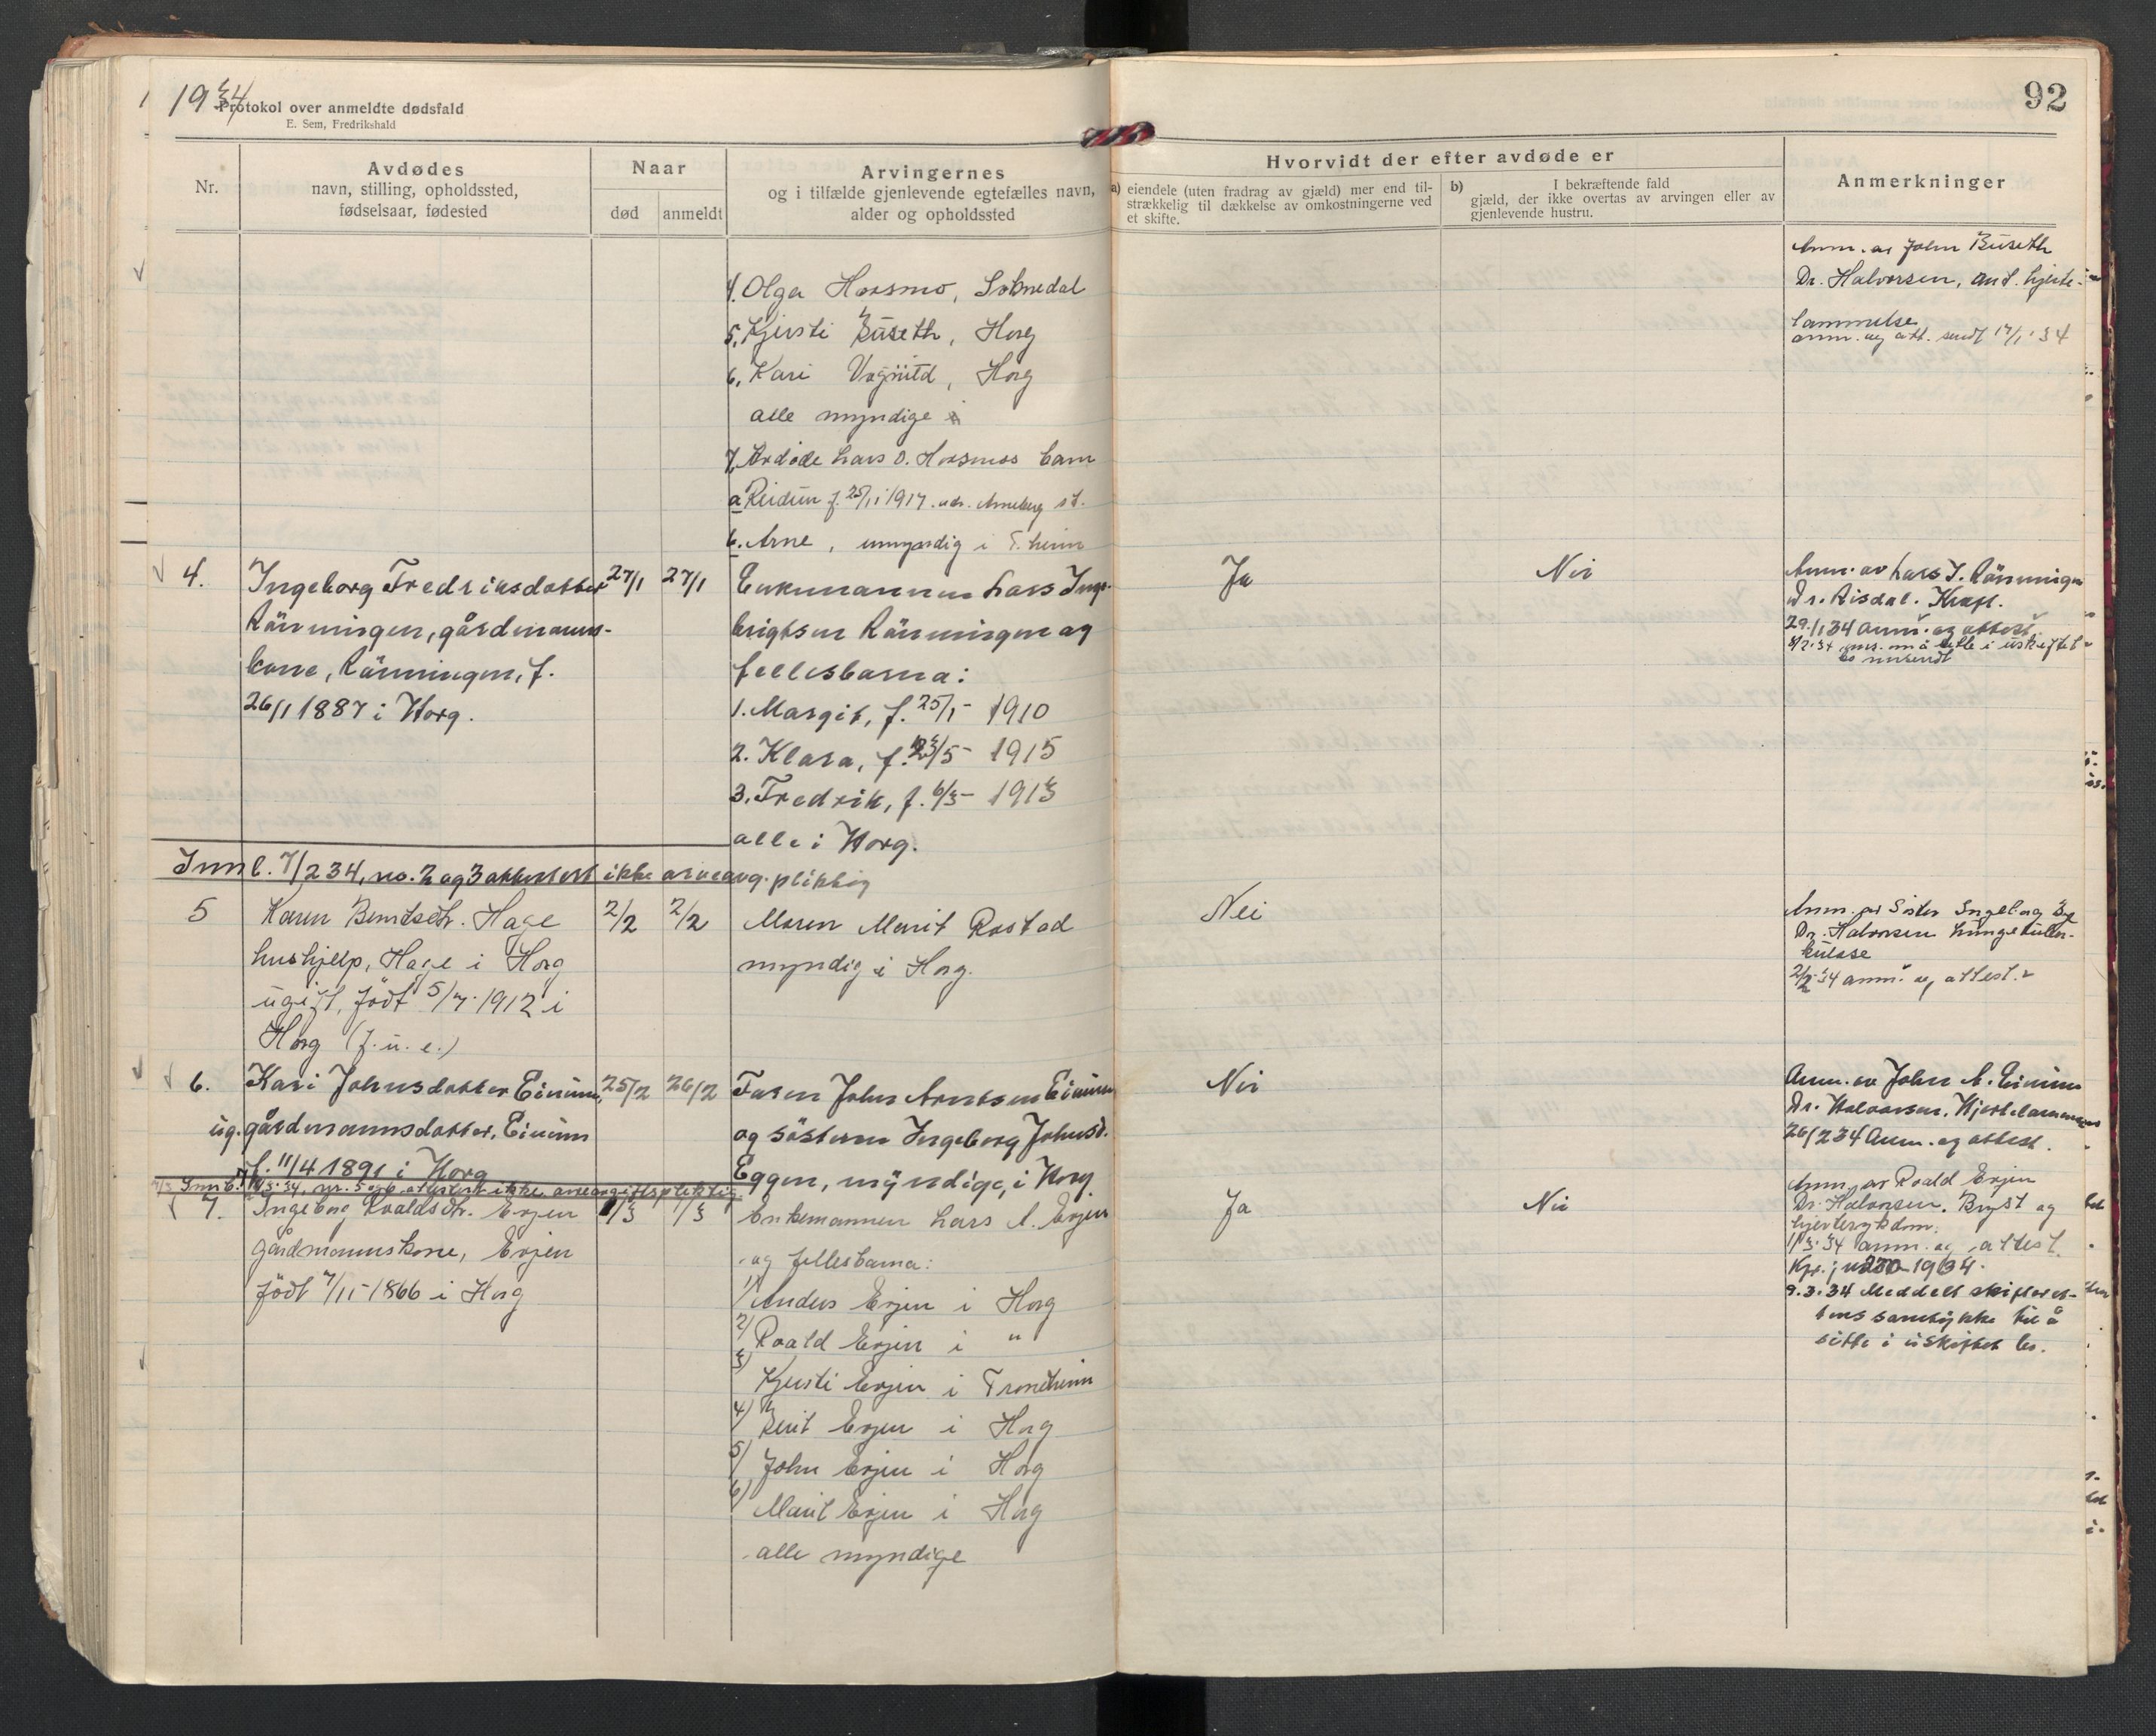 1934
Protokol over anmeldte dødsfald
E. Sem, Fredrikshald
92
Nr.
Avdødes
navn, stilling, opholdssted,
fødselsaar, fødested
Naar
død
anmeldt
Arvingernes
og i tilfælde gjenlevende egtefælles navn,
alder og opholdssted
Hvorvidt der efter avdøde er
a) eiendele (uten fradrag av gjæld) mer end til-
strækkelig til dækkelse av omkostningerne ved
et skifte.
b) I bekræftende fald
gjæld, der ikke overtas av arvingen eller av
gjenlevende hustru.
Anmerkninger
4. Olga Horsmo, Soknedal
5. Kjersti Buseth, Horg
6. Kari , Horg
alle myndige
7. Avdøde Lars O. Horsmos barn
a Reidun f. 25/11 1917. adr. Arneberg st.
b. Arne, umyndig i T.heim
Anm. av John Buseth
Dr. Halvorsen, hjerte-
lammelse
anm. og att. sendt 17/1 34
4.
Ingeborg Fredriksdatter
Rönningen, gårdmanns-
kone, Rönningen, f.
26/1 1887 i Horg.
27/1
27/1
Enkemannen Lars Inge-
brigtsen Rönningen og
fellesbarna:
1. Margit, f. 25/1 - 1910
2. Klara, f. 23/5 - 1915
3. Fredrik, f. 6/3 - 1913
alle i Horg.
Ja
Nei
Anm. av Lars I. Rönningen
Dr. Risdal. Kreft.
29/1 34 anm. og attest
8/2 34 å sitte i uskiftet
bo
Innb. 7/2 34, no. 2 og 3 attestert ikke arveavg. pliktig
5
Karen Berntsdtr. Hage
hushjelp, Hage i Horg
ugift, född 5/7 1912 i
Horg (f. u. e.)
2/2
2/2
Moren Marit Rostad
myndig i Horg.
Nei
Anm. av Söster Ingeborg
Dr. Halvorsen Lungetuber-
kulose
2/2 34 anm. og attest.
6.
Kari Johnsdatter Einum,
ug. gårdmannsdatter, Einum
f. 11/4 1891 i Horg
25/2
26/2
Faren John Arntsen Einum
og söstern Ingeborg Johnsd.
Eggen, myndige, i Horg
Nei
Anm. av John A. Einum
Dr. Halvorsen. Hjertelammelse
26/2 34 Anm. og attest.
Innb. 3. 34, nr. 5 og 6 attestert ikke arveavgiftspliktig.
7.
Ingeborg Roaldsdtr. Evjen
Gårdmannskone, Evjen
född 7/11-1866 i Horg
1/3
1/3
Enkemannen Lars A. Evjen
og fellesbarna:
1) Anders Evjen i Horg
2) Roald Evjen i "
3) Kjersti Evjen i Trondheim
4) Berit Evjen i Horg
5) John Evjen i Horg
6) Marit Evjen i Horg
alle myndige
Ja
Nei
Anm. av Roald Evjen
Dr. Halvorsen. Bryst og
hjertesykdom.
1/3 34 anm. og attest.
1934.
9.3.34 Meddelt skifteret-
tens samtykke til å
sitte i uskiftet bo.